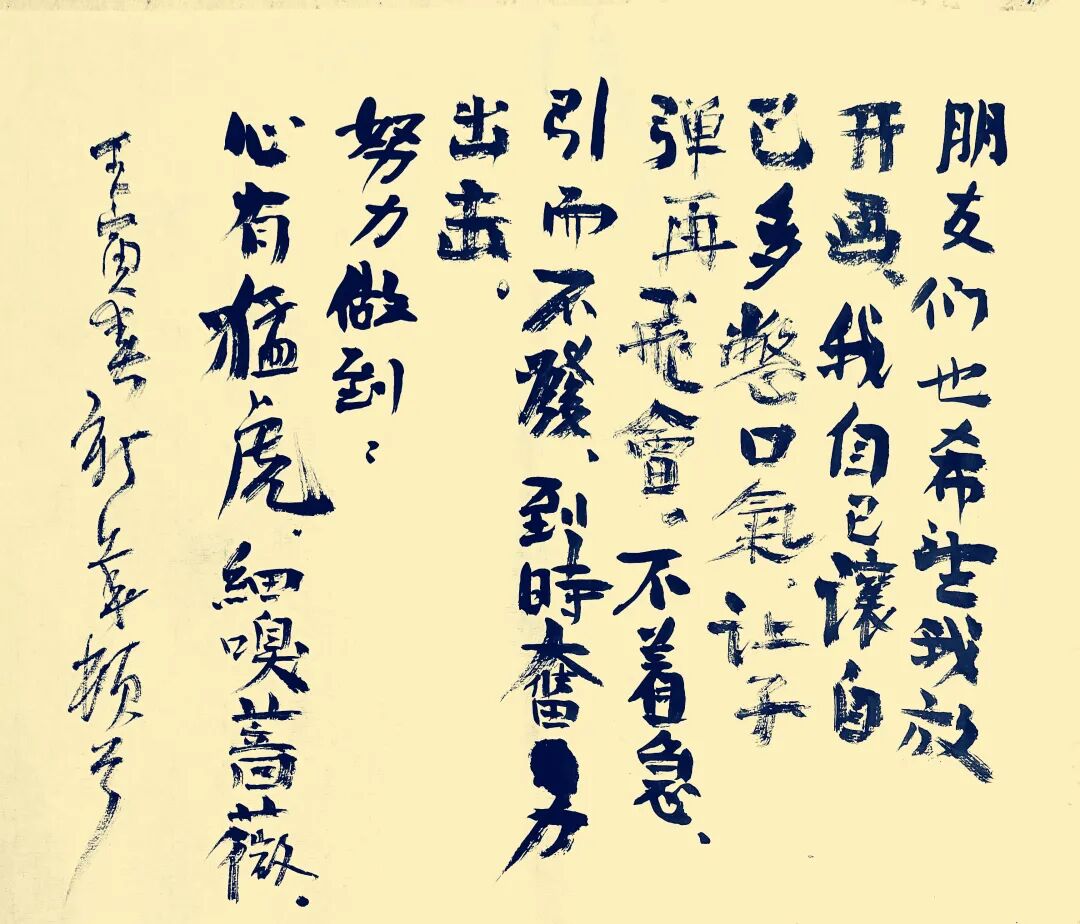 朋友们也希望我放
开画、我自己讓自
己多憋口氣。让子
弹再飛會。不着急、
引而不發、到時奮力
出击。
努力做到：
心有猛虎.細嗅薔薇.
壬寅春